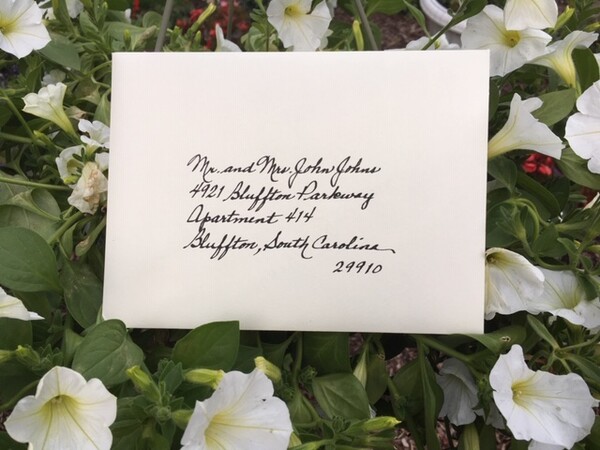 Mr. and Mrs. John Johns
4921 Bluffton Parkway
Apartment 414
Bluffton, South Carolina
29910